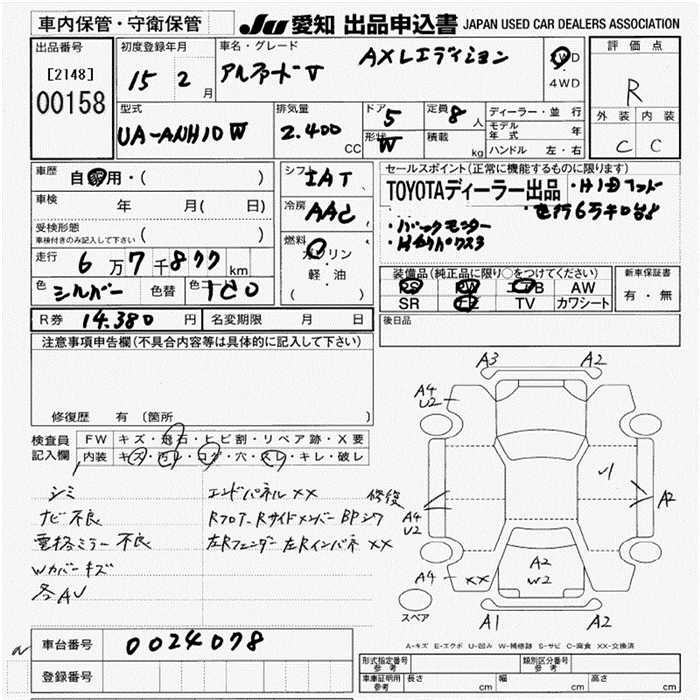 車内保管・守衛保管
JU 愛知 出品申込書 JAPAN USED CAR DEALERS ASSOCIATION
出品番号
[2148]
00158
初度登録年月
15 2 月
車名・グレード
アルファードV AXLエディション
2WD
・
4WD
評価点
R
外装 内装
C C
型式
UA-ANH10W
排気量
2.400 cc
ドア 5
形状 W
定員 8 人
積載 kg
ディーラー・並行
モデル年式 年
ハンドル 左・右
車歴
自家用・( )
車検 年 月( 日)
受検形態
車検付きのみ記入して下さい ( )
走行 6万7千877km
色 シルバー 色替 色コ 1C0
シフト IAT
冷房 AAC
燃料
ガソリン
・
軽・油
( )
セールスポイント(正常に機能するものに限ります)
TOYOTAディーラー出品
・バックモニター
装備品(純正品に限り○をつけてください)
PS PW エアB AW
SR TV カワシート
新車保証書
有・無
R券 14.380 円 名変期限 月 日
後日品
注意事項申告欄(不具合内容等は具体的に記入して下さい)
修復歴 有 (箇所
検査員記入欄
FW キズ・飛石・ヒビ割・リペア跡・X要
内装 キズ・汚レ・コゲ・穴・スレ・キレ・破レ
シミ
ナビ不良
電格ミラー不良
Wカバーキズ
各AU
エンドパネルXX 修復
Rフロアー、Rサイドメンバー BPシワ
左Rフェンダー 左Rインパネ XX
A3 A2
A4
U2
U1
A2
A4
U2
A4 XX
A2
W2
A1 A2
スペア
A-キズ E-エクボ U-凹み W-補修跡 S-サビ C-腐食 XX-交換済
車台番号 0024078
登録番号
形式指定番号 参考
類別区分番号 参考
車庫証明用 参考 長さ cm 幅 cm 高さ cm